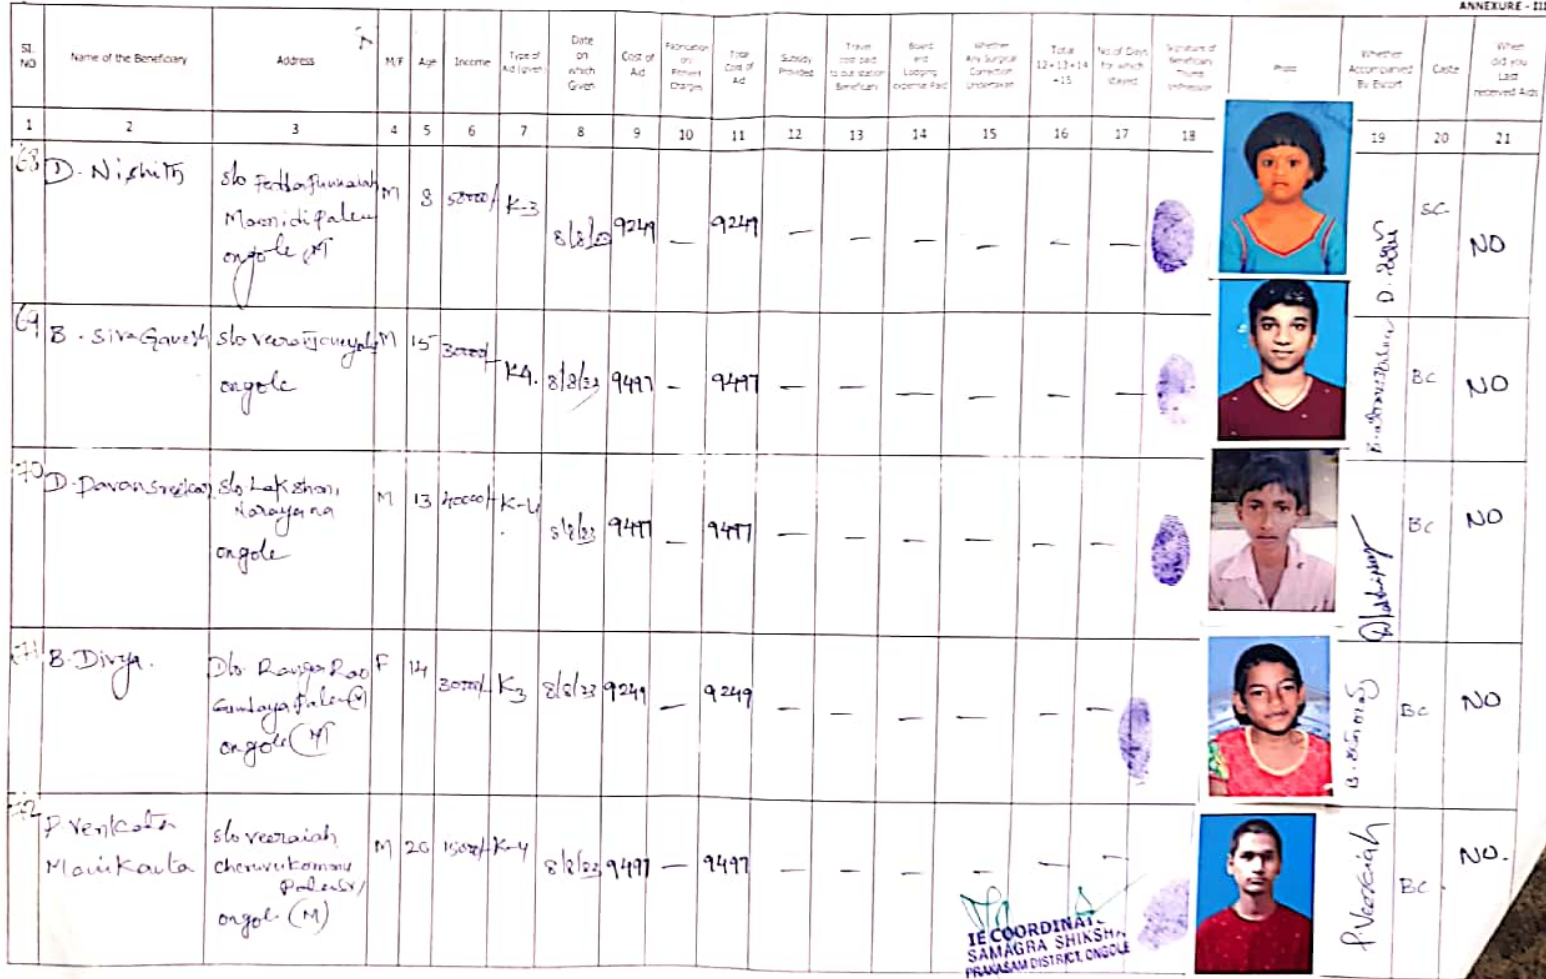 ANNEXURE - III
SI. NO Name of the Beneficiary Address M/F Age Income Type of Aid (given) Date on which Given Cost of Aid Fabrication on Fitment Charges Total Cost of Aid Subsidy Provided Travel cost paid to out station Beneficiary Board and Lodging expense Paid Whether Any Surgical Correction Undertaken Total 12+13+14+15 No. of Days for which stayed Signature of Beneficiary Thumb Impression Photo Whether Accompanied By Escort Caste When did you Last received Aids
1 2 3 4 5 6 7 8 9 10 11 12 13 14 15 16 17 18 19 20 21
68 D. Nishith s/o M 8 50000/- K-3 8/8/23 9249 — 9249 — — — — — — SC NO
ongole (M)
69 B. Siva Ganesh s/o Veeranjaneyulu M 15 30000/- K4. 8/8/23 9497 — 9497 — — — — — — BC NO
ongole
70 D. Pavan Sreekar s/o Lakshmi Narayana M 13 40000/- K-4 8/8/23 9497 — 9497 — — — — — — BC NO
ongole
71 B. Divya. D/o. Ranga Rao F 14 30000/- K3 8/8/23 9249 — 9249 — — — — — — BC NO
ongole (M)
72 P Venkata Manikanta s/o Veeraiah M 20 K-4 8/8/23 9497 — 9497 — — — — — — P. Veeraiah BC NO.
ongole (M)
IE COORDINAT
SAMAGRA SHIKSHA
PRAKASAM DISTRICT, ONGOLE